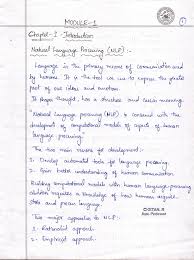 MODULE-1
Chapter-1 - Introduction
Natural Language Processing (NLP) :-
Language is the primary means of communication used
by humans. It is the tool we use to express the greater
part of our ideas and emotions.
It shapes thought, has a structure and carries meaning.
Natural language processing (NLP) is concerned with the
development of computational models of aspects of human
language processing.
The two main reasons for development :-
1. Develop automated tools for language processing
2. Gain better understanding of human communication
Building computational models with human language-processing
abilities requires a knowledge of how humans acquire,
store and process language.
CHETAN. R
Asst. Professor
Two major approaches to NLP :-
1. Rationalist approach
2. Empiricist approach